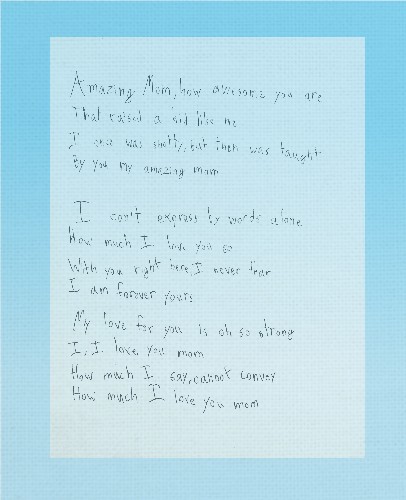 Amazing Mom, how awesome you are
That raised a kid like me
I once was snotty, but then was taught
By you my amazing mom
I can't express by words alone
How much I love you so
With you right here, I never fear
I am forever yours
My love for you is oh so strong
I, I love you mom
How much I say, cannot convey
How much I love you mom